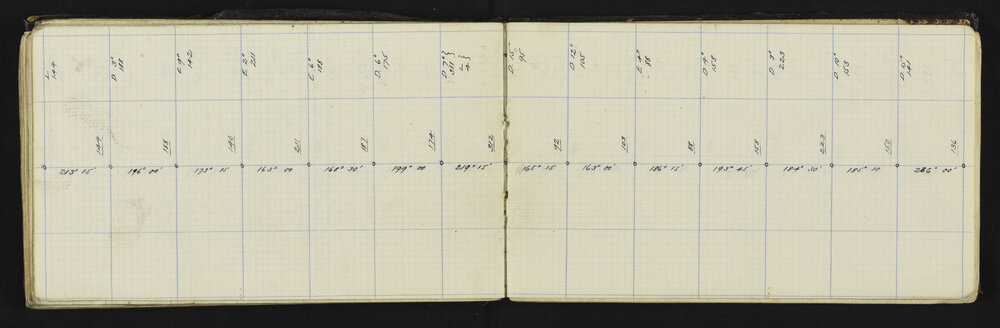 L
144
D 3°
188
E 9°
142
E 2°
211
E 6°
188
D 6°
175
D 7°
311
L
4
D 15
95
D 12°
105
E 4°
88
D 4°
158
D 3°
223
D 10°
153
D 15°
141
144
188
140
211
187
174
312
92
103
88
158
223
151
136
213° 15'
196° 00'
173° 15
163° 00
168° 30'
199° 00
219° 15'
165° 15
163° 00'
186° 15'
193° 45'
184° 30'
185° 10
226° 00'